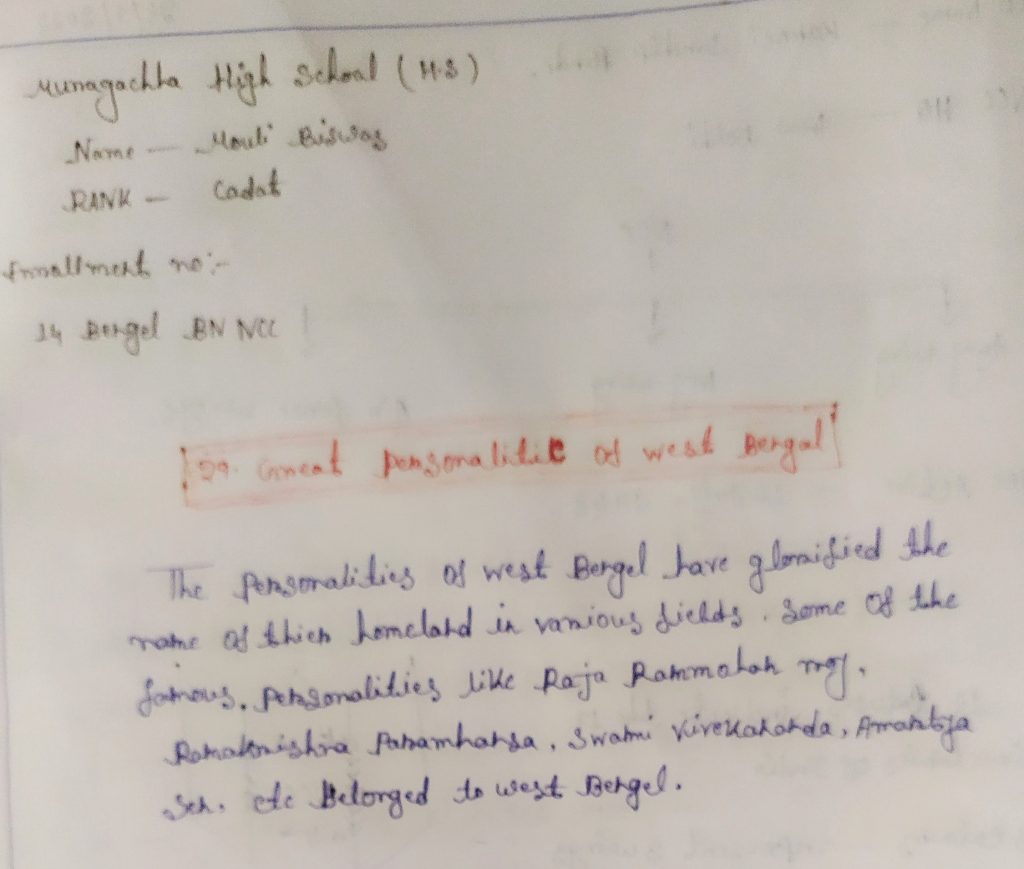 Munagachha High School (H.S)
Name — Mouli Biswas
RANK — Cadat
Enrallment no:-
14 Bengel BN NCC
29. Great personalitie of west Bengal
The personalities of west Bengel have glorified the
name of thier homeland in various fields. Some of the
famous. personalities like Raja Rammohan roy.
Ramakrishna Paramhansa, Swami Vivekananda, Amartya
Sen. etc Belonged to west Bengel.